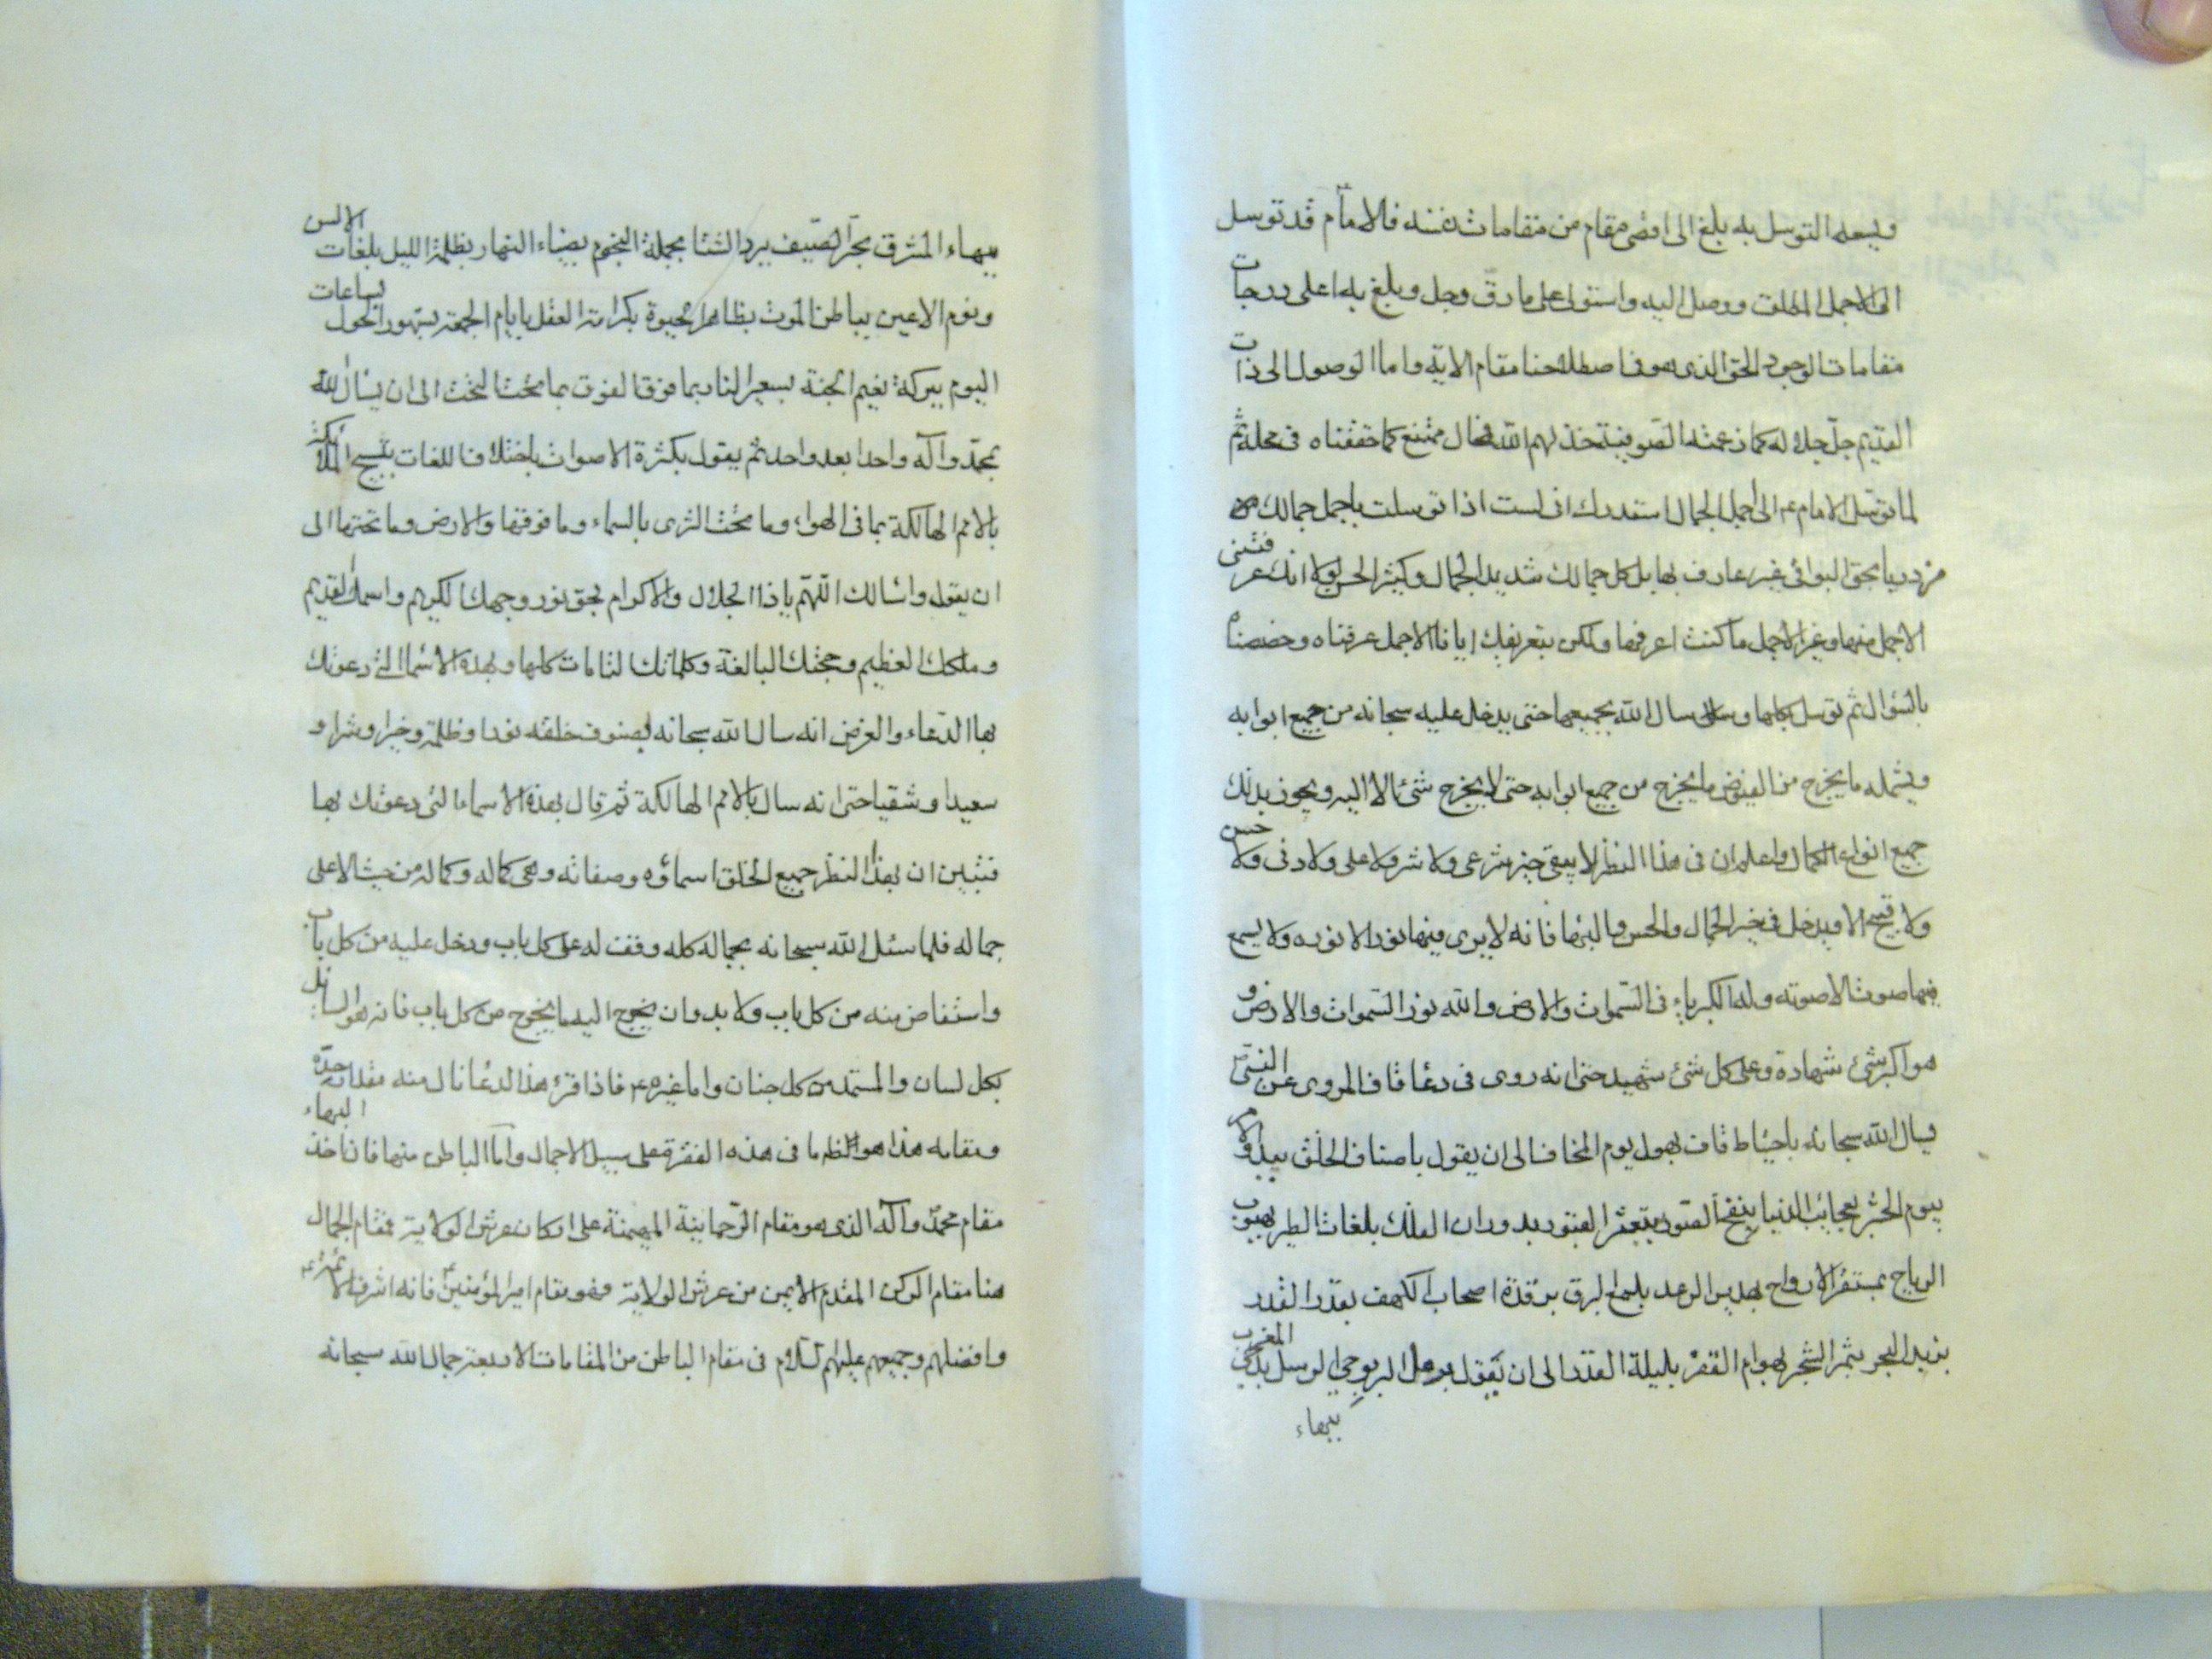 ويسعه التوسل به بلغ الى اقصى مقام من مقامات نفسه فالامام قد توسل
الى الاجمل المطلق ووصل اليه واستولى على ما رق وجل وبلغ به اعلى درجات
مقامات الوجود الحق الذى هو فى اصطلاحنا مقام الاية واما الوصول الى ذات
القديم جل جلاله كما زعمته الصوفية خذلهم الله فمحال ممتنع كما حققناه فى محله ثم
لما توسل الامام ع الى اجمل الجمال استدرك انى لست اذا توسلت باجمل جمالك
مزدريا بحق البواقى غير عارف بها بل كل جمالك شديد الجمال وكثير الحسن ولولا انك عرفتنى
الاجمل منها وغير الاجمل ما كنت اعرفها ولكن بتعريفك ايانا الاجمل عرفناه وخصصناه
بالسؤال ثم توسل بكلها وسال الله بجميعها حتى يدخل عليه سبحانه من جميع ابوابه
ويشمله ما يخرج من الفيوض ما يخرج من جميع ابوابه حتى لا يخرج شئ الا اليه ويحوز بذلك
جميع انواع الكمال واعلم ان فى هذا النظر لا يبقى خير شرعى ولا شر ولا على ولا دنى ولا حسن
ولا قبيح الا ويدخل فى خير الجمال والحسن والبهاء فانه لا يرى فيها نور الا نوره ولا يسمع
فيها صوت الا صوته وله الكبرياء فى السموات والارض والله نور السموات والارض و
هو اكبر شئ شهادة وعلى كل شئ شهيد حتى انه روى فى دعا قاف المروى عن النبى
يسال الله سبحانه باحتياط قاف بهول يوم المخاف الى ان يقول باصناف الخلق ببيد
بيوم الحشر بعجائب الدنيا بنفخ الصور بتبعثر القبور بدوران الفلك بلغات الطير بهبوب
الرياح بمستقر الارواح بهدير الرعد بلمع البرق برقدة اصحاب الكهف بقدر القدر
بزبد البحر بثمر الشجر بهوام القفر بليلة القدر الى ان يقول برمل البر بوحى الرسل المغرب
ببهاء
ببهاء المشرق بحر الصيف ببرد الشتا بجملة النجوم بضياء النهار بظلمة الليل بلغات الالسن
ونوم الاعين بباطن الموت بظاهر الحيوة بكرامة العقل بايام الجمعة بشهور الحول بساعات
اليوم ببركة نعيم الجنة بسعير النار بما فوق الفوق بما تحت التحت الى ان يسال الله
بمحمد وآله واحدا بعد واحد ثم يقول بكثرة الاصوات باختلاف اللغات بتسبيح الملائكة
بالامم الهالكة بما فى الهواء وما تحت الثرى بالسماء وما فوقها والارض وما تحتها الى
ان يقول واسالك اللهم يا ذا الجلال والاكرام بحق نور وجهك الكريم واسمك القديم
وملكك العظيم وحجتك البالغة وكلماتك التامات كلها وبهذه الاسماء التى دعوتك
بها الدعاء والغرض انه سال الله سبحانه بصنوف خلقه نورا وظلمة وخيرا وشرا و
سعيدا وشقيا حتى انه سال بالامم الهالكة ثم قال بهذه الاسماء التى دعوتك بها
فتبين ان بهذا النظر جميع الخلق اسماؤه وصفاته وهى كماله وكماله من حيث الاعلى
جماله فلما سئل الله سبحانه بجماله كله وقف له على كل باب ودخل عليه من كل باب
واستفاض منه من كل باب ولا بد وان يخرج اليه ما يخرج من كل باب فانه هو السائل
بكل لسان والمستمد من كل جنان واما غيره ع فاذا قرء هذا الدعا نال منه مقدار حده
ومقامه هذا هو الظاهر ما فى هذه الفقرة على سبيل الاجمال واما الباطن منها فان اخذ البهاء
مقام محمد وآله الذى هو مقام الرحمانية المهيمنة على اركان عرش الولاية فمقام الجمال
هنا مقام الركن المقدم الايمن من عرش الولاية وهو مقام امير المؤمنين ع فانه اشرف الائمة ع
وافضلهم وجميعهم عليهم السلام فى مقام الباطن من المقامات الاربعة جمال الله سبحانه